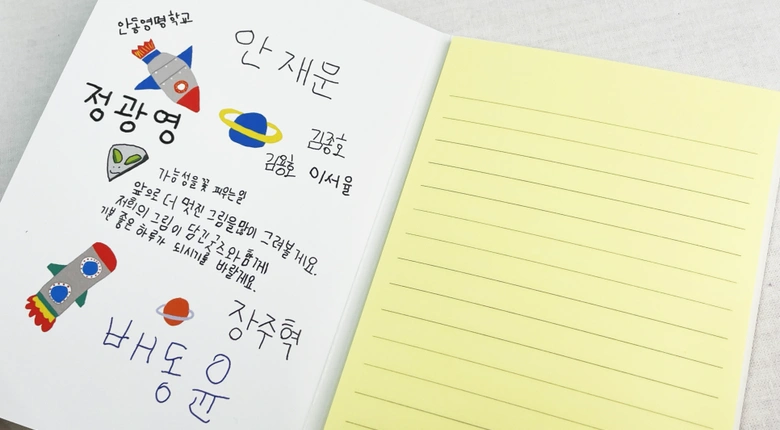 안동영명학교
안재문
정광영
김종호
김용호 이서율
가능성을 꽃 피우는 일
앞으로 더 멋진 그림을 많이 그려볼게요.
저희의 그림이 담긴 굿즈와 함께
기분 좋은 하루가 되시기를 바랄게요.
장주혁
배동윤